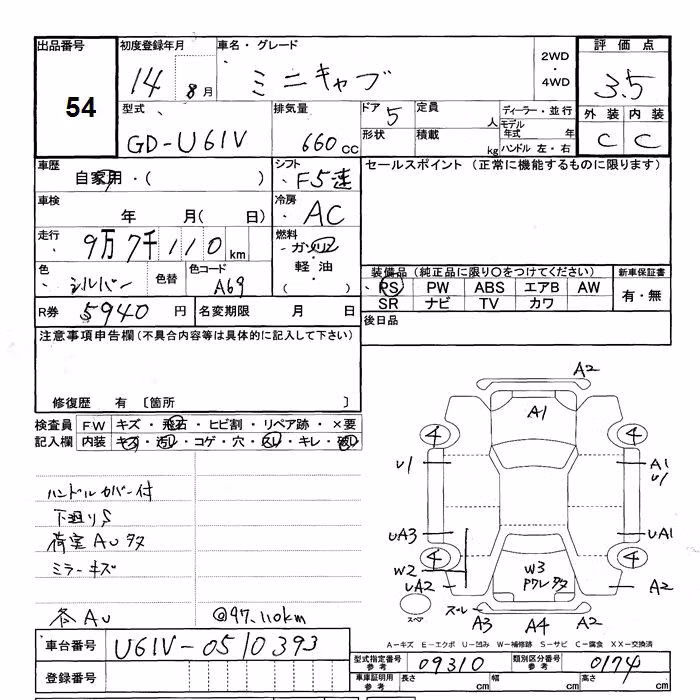 出品番号 初度登録年月 車名・グレード 2WD・4WD 評価点
54 14 8月 ミニキャブ 3.5
型式 排気量 ドア 5 定員 人 ディーラー・並行 外装 内装
GD-U61V 660cc 形状 積載 kg モデル年式 年 ハンドル 左・右 C C
車歴 自家用・( ) シフト F5速 セールスポイント(正常に機能するものに限ります)
車検 年 月( 日) 冷房 AC
走行 9万7千110km 燃料 ガソリン・軽油・( )
色 シルバー 色替 色コード A69 装備品(純正品に限り○をつけてください) 新車保証書
PS PW ABS エアB AW 有・無
R券 5940円 名変期限 月 日 SR ナビ TV カワ
注意事項申告欄(不具合内容等は具体的に記入して下さい) 後日品
修復歴 有 〔箇所 〕
検査員 FW キズ・飛石・ヒビ割・リペア跡・×要
記入欄 内装 キズ・汚レ・コゲ・穴・スレ・キレ・
A2
A1
4 4
U1 A1
U1
UA3 UA1
4 4
W2 W3
UA2 A2
スペア A3 A4 A2
ハンドルカバー付
下廻りS
荷室AU
ミラーキズ
各AU @97,110km
A-キズ E-エクボ U-凹み W-補修跡 S-サビ C-腐食 XX-交換済
車台番号 U61V-0510393
型式指定番号 参考 09310 類別区分番号 参考 0174
登録番号 車庫証明用 参考 長さ cm 幅 cm 高さ cm